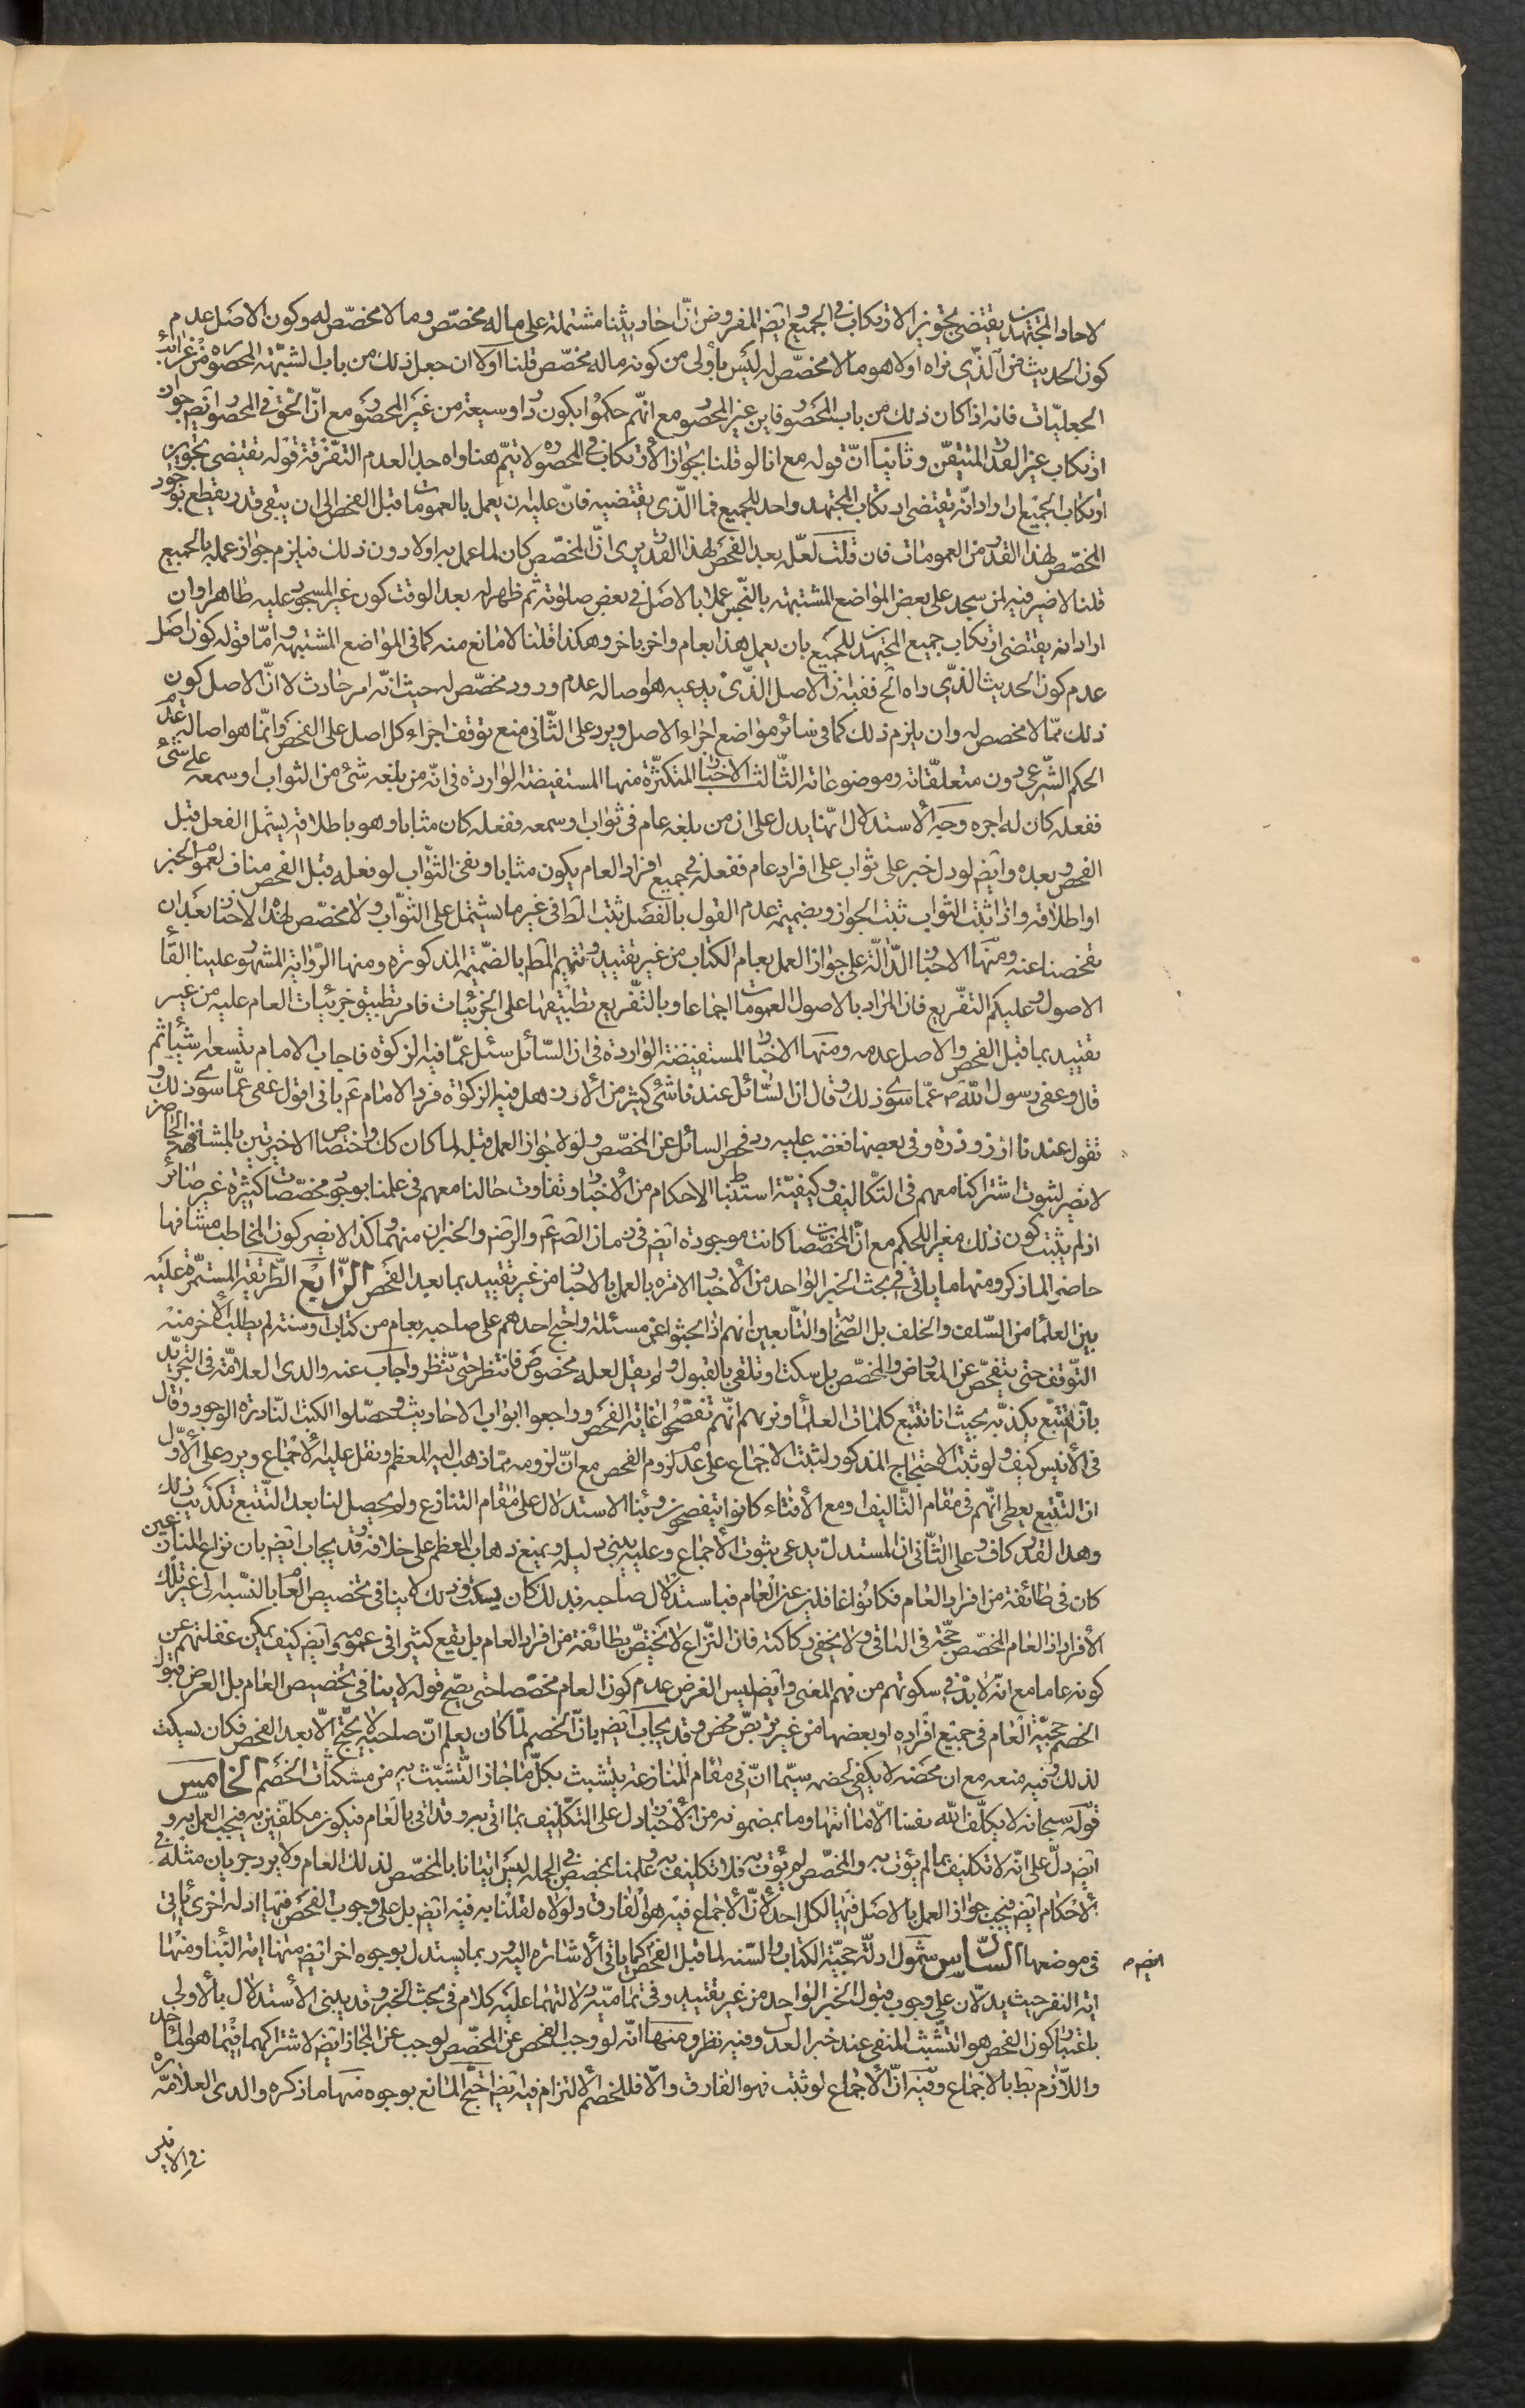 لاحاد المجتهدين يقتضى تجويز الارتكاب فى الجميع وايضا المفروض انّ احاديثنا مشتملة على ماله مخصّص وما لا مخصّص له وكون الاصل عدم
كون الحديث من الّذى نراه اولا هو ما لا مخصّص له ليس باولى من كونه ما له مخصّص قلنا اولا ان جعل ذلك من باب الشبهة المحصورة من غرائب
الجعليّات فانه اذا كان ذلك من باب المحصور فاين غير المحصور مع انهم حكموا بكون دار وسيعة من غير المحصور مع انّ الحق فى المحصور ايضا جواز
ارتكاب غير القدر المتيقّن وثانيا انّ قوله مع انا لو قلنا بجواز الارتكاب فى المحصورة لا يتمّ هنا واه جدا لعدم التفرقة قوله يقتضى تجويز
ارتكاب الجميع ان اراد انّه يقتضى ارتكاب المجتهد واحد للجميع فما الّذى يقتضيه فانّ عليه ان يعمل بالعمومات ما قبل الفحص الى ان يبقى قدر يقطع بوجود
المخصّص لهذا القدر من العمومات فان قلت لعلّه بعد الفحص لهذا القدر يرى انّ المخصّص كان لما عمل به اولا دون ذلك فيلزم جواز عمله بالجميع
قلنا لا ضير فيه كمن سجد على بعض المواضع المشتبهة بالنّجس عملا بالاصل فى بعض صلوته ثم ظهر له بعد الوقت كون غير المسجود عليه طاهرا وان
اراد انه يقتضى ارتكاب جميع المجتهدين للجميع بان يعمل هذا بعام واخر باخر وهكذا قلنا لا مانع منه كما فى المواضع المشتبهة وامّا قوله كون اصل
عدم كون الحديث الّذى راه الخ ففيه انّ الاصل الّذى يدعيه هو اصالة عدم ورود مخصّص له حيث انّه امر حادث لا انّ الاصل كون
ذلك ممّا لا مخصص له وان يلزم ذلك كما فى سائر مواضع اجراء الاصل ويرد على الثّانى منع توقف اجراء كل اصل على الفحص وانّما هو اصالة عدم
الحكم الشّرعى دون متعلّقاته وموضوعاته الثّالث الاخبار المتكثّرة منها المستفيضة الواردة فى انّه من بلغه شئ من الثواب او سمعه على شئ
ففعله كان له اجره وجه الاستدلال انّها يدل على ان من بلغه عام فى ثواب او سمعه ففعله كان مثابا وهو باطلاقه يشمل الفعل قبل
الفحص وبعده وايضا لو دل خبر على ثواب على افراد عام ففعله فى جميع افراد العام يكون مثابا ونفى الثّواب لو فعله قبل الفحص مناف لعموم الخبر
او اطلاقه واذا ثبت الثواب ثبت الجواز وبضميمة عدم القول بالفصل ثبت المط فى غير ما يشتمل على الثّواب ولا مخصّص لهذه الاخبار بعد ان
تفحصنا عنه ومنها الاخبار الدّالّة على جواز العمل بعام الكتاب من غير تقييد وتتميم المط بالضّميمة المذكورة ومنها الرّواية المشهورة علينا القاء
الاصول وعليكم التفريع فان المراد بالاصول العمومات اجماعا وبالتّفريع تطبيقها على الجزئيات فامر بتطبيق جزئيات العام عليه من غير
تقييد بما قبل الفحص والاصل عدمه ومنها الاخبار المستفيضة الواردة فى ان السّائل سئل عمّا فيه الزكوة فاجاب الامام بتسعة اشياء ثم
قال وعفى رسول اللّه ص عمّا سوى ذلك وقال ان السّائل عندنا شئ كثير من الارز هل فيه الزكوة فرد الامام ع بانى اقول عفى عمّا سوى ذلك و
تقول عندنا ارز وذرة وفى بعضها فغضب عليه ورد فحص السائل عن المخصّص ولولا جواز العمل قبله لما كان كك واختصاص الاخيرتين بالمشافهة الحاضر
لا يضر لثبوت اشتراكنا معهم فى التّكاليف وكيفيّة استنباط الاحكام من الاخبار وتفاوت حالنا معهم فى علمنا بوجود مخصّصات كثيرة غير ضائر
اذ لم يثبت كون ذلك مغير اللحكم مع انّ المخصّصات كانت موجودة ايضا فى زمان الصّ ع والرضا والخبران منهما وكذا لا يضر كون المخاطب مشافها
حاضرا لما ذكر ومنها ما ياتى فى بحث الخبر الواحد من الاخبار الامرة بالعمل بالاخبار من غير تقييد بما بعد الفحص الرّابع الطّريقة المستمرّة عليه
بين العلماء من السّلف والخلف بل الصّحابة والتّابعين انهم اذا بحثوا عن مسئلة واحتج احدهم على صاحبه بعام من كتاب او سنة لم يطلب الاخر منه
التّوقف حتى يتفحّص عن المعارض والمخصّص بل سكت او تلقى بالقبول ولم يقل لعله مخصوص فانتظر حتى ننظر واجاب عنه والدى العلامّة فى التجريد
بانّ التتبّع يكذبه بحيث انا نتتبع كلمات العلماء ونريهم انّهم تفحّصوا غاية الفحص وراجعوا ابواب الاحاديث وحصّلوا الكتب النّادرة الوجود وقال
فى الانيس كيف ولو ثبت الاحتجاج المذكور لثبت الاجماع على عدم لزوم الفحص مع انّ لزومه ممّا ذهب اليه المعظم ونقل عليه الاجماع ويرد على الاوّل
ان التّتبع يعطى انّهم فى مقام التّاليف ومع الافتاء كانوا يتفحصون وبناء الاستدلال على مقام التنازع ولم يحصل لنا بعد التّتبع تكذيب ذلك
وهذا القدر كاف وعلى الثّانى ان المستدلّ يدعى ثبوت الاجماع وعليه يبنى دليله ويمنع ذهاب المعظم على خلافه وقد يجاب ايضا بان نزاع المتنازعين
كان فى طائفة من افراد العام فكانوا غافلين عن العام فباستدلال صاحبه بذلك كان يسكت وذلك لا ينافى تخصيص العام بالنّسبة الى غير تلك
الافراد اذ العام المخصّص حجّة فى الباقى ولا يخفى ركاكته فان النّزاع لا يختصّ بطائفة من افراد العام بل يقع كثيرا فى عمومه وايضا كيف يمكن غفلتهم عن
كونه عاما مع انّه لا بدّ فى سكوتهم من فهم المعنى وايضا ليس الغرض عدم كون العام مخصّصا حتى يصّح قوله لا ينافى تخصيص العام بل الغرض قبول
الخصم حجيّة العام فى جميع افراده او بعضها من غير تربّص محض وقد يجاب ايضا بانّ الخصم لمّا كان يعلم انّ صاحبه لا يحتّج الّا بعد الفحص فكان يسكت
لذلك وفيه منعه مع ان محضه لا يكفى الخصم سيّما انّ فى مقام المنازعة يتشبث بكلّ ما جاز التّشبّث به من مشككات الخصم الخامس
قوله سبحانه لا يكلّف اللّه نفسا الّا ما اتيها وما بمضمونه من الاخبار دل على التّكليف بما اتى به وقد اتى بالعام فيكون مكلّفين به فيجب العمل به و
ايضا دلّ على انّه لا تكليف بما لم يؤت به والمخصّص لم يؤت به فلا تكليف به وعلمنا بمخصّص فى الجملة ليس اتيانا بالمخصّص لذلك العام ولا يرد جريان مثله فى
الاحكام ايضا فيجب جواز العمل بالاصل فيها لكل احد لانّ الاجماع فيه هو الفارق ولولاه لقلنا به فيه ايضا بل على وجوب الفحص فيها ادلة اخرى ياتى
فى موضعها السّادس شمول ادلّة حجيّة الكتاب والسّنة لما قبل الفحص كما ياتى الاشارة اليه وربما يستدل بوجوه اخر ايضا منها اية النّبا ومنها
اية النفر حيث يدلّان على وجوب قبول الخبر الواحد من غير تقييد وفى تماميّة دلالتهما عليه كلام فى بحث الخبر وقد يبنى الاستدلال بالاولى
باعتبار كون الفحص هو التثبّت المنفى عند خبر العدل وفيه نظر ومنها انّه لو وجب الفحص عن المخصّص لوجب عن المجاز ايضا لاشتراكهما فيما هو المناط
واللّازم بط بالاجماع وفيه انّ الاجماع لو ثبت فهو الفارق والّا فللخصم الالتزام فيه ايضا احتجّ المانع بوجوه منها ما ذكره والدى العلّامة ره
فى الانيس